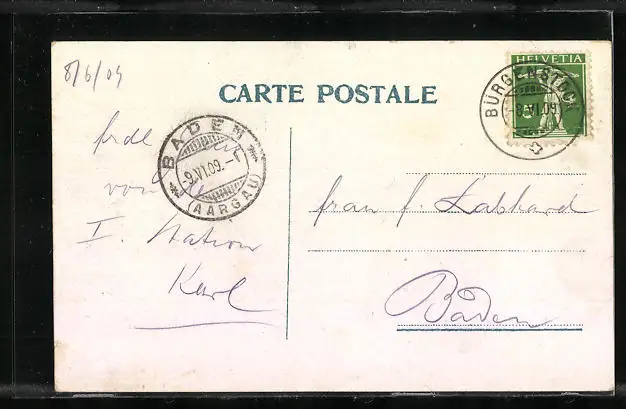 8/6/09
HELVETIA
BÜRGENSTOCK
8.VI.09
CARTE POSTALE
BADEN
-9.VI.09.-
(AARGAU)
von
I. Station
Karl
frau f. Labhard
Baden